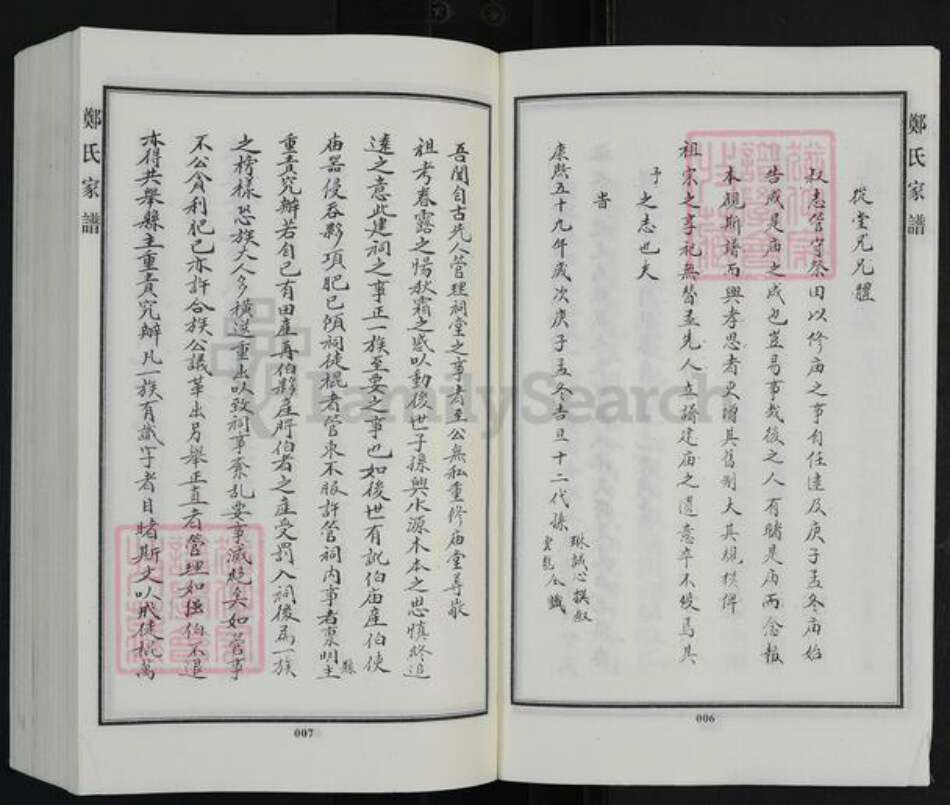 鄭氏家譜
從堂兄兄體
叔志管守祭田以修庙之事有任逵及庚子孟冬庙始
告成是庙之成也豈易事哉後之人有睹是庙而念報
本觀斯譜而興孝思者更增其舊制大其規模俾
祖宗之享祀無替並先人立譜建庙之遺意卒不優焉其
予之志也夫
旹
康熙五十九年歲次庚子孟冬吉旦十二代孫
琳誠心譔叙
仝識
006
鄭氏家譜
吾聞自古先人管理祠堂之事者至公無私重修庙堂尊敬
祖考春露之惕秋霜之感以動後世子孫興水源木本之思慎終追
遠之意此建祠之事正一族至要之事也如後世有訛伯庙產伯使
庙器侵吞夥項肥己傾祠徒棍者管束不服許管祠内事者稟明縣主
重責究辦若自己有田產再伯夥產將伯者之產受罰入祠後為一族
之榜樣恐族大人多橫逆重出以致祠事紊乱要事滅規矣如管事
不公貪利肥己亦許合族公議革出另舉正直者管理如强伯不退
亦得共舉縣主重責究辦凡一族有識字者目睹斯文以戒徒棍萬
007
FamilySearch